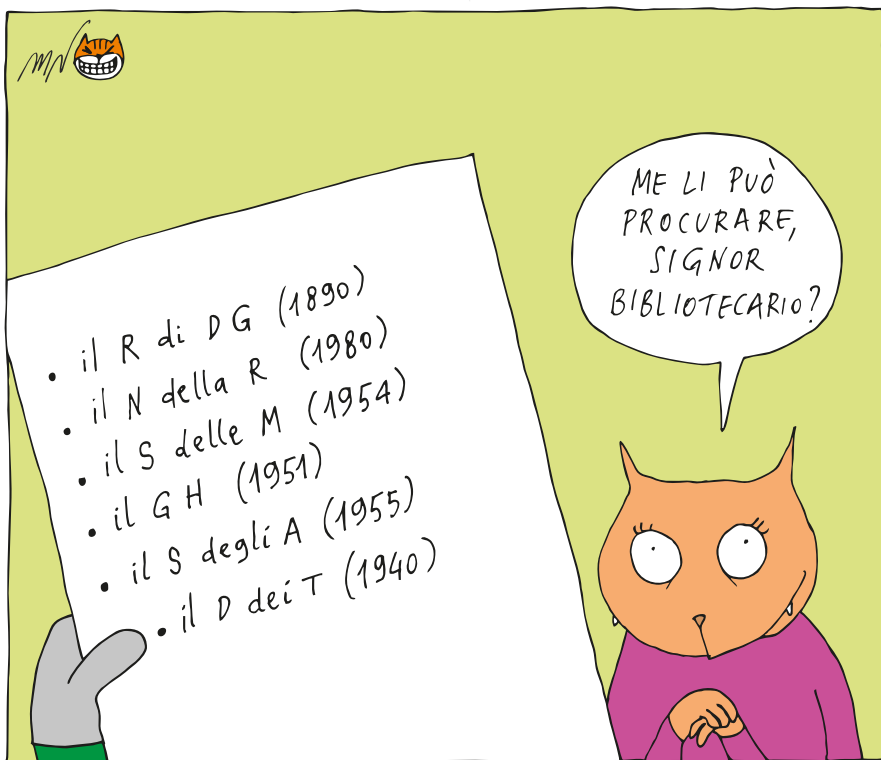 MN
• il R di DG (1890)
• il N della R (1980)
• il S delle M (1954)
• il G H (1951)
• il S degli A (1955)
• il D dei T (1940)
ME LI PUÒ
PROCURARE,
SIGNOR
BIBLIOTECARIO?